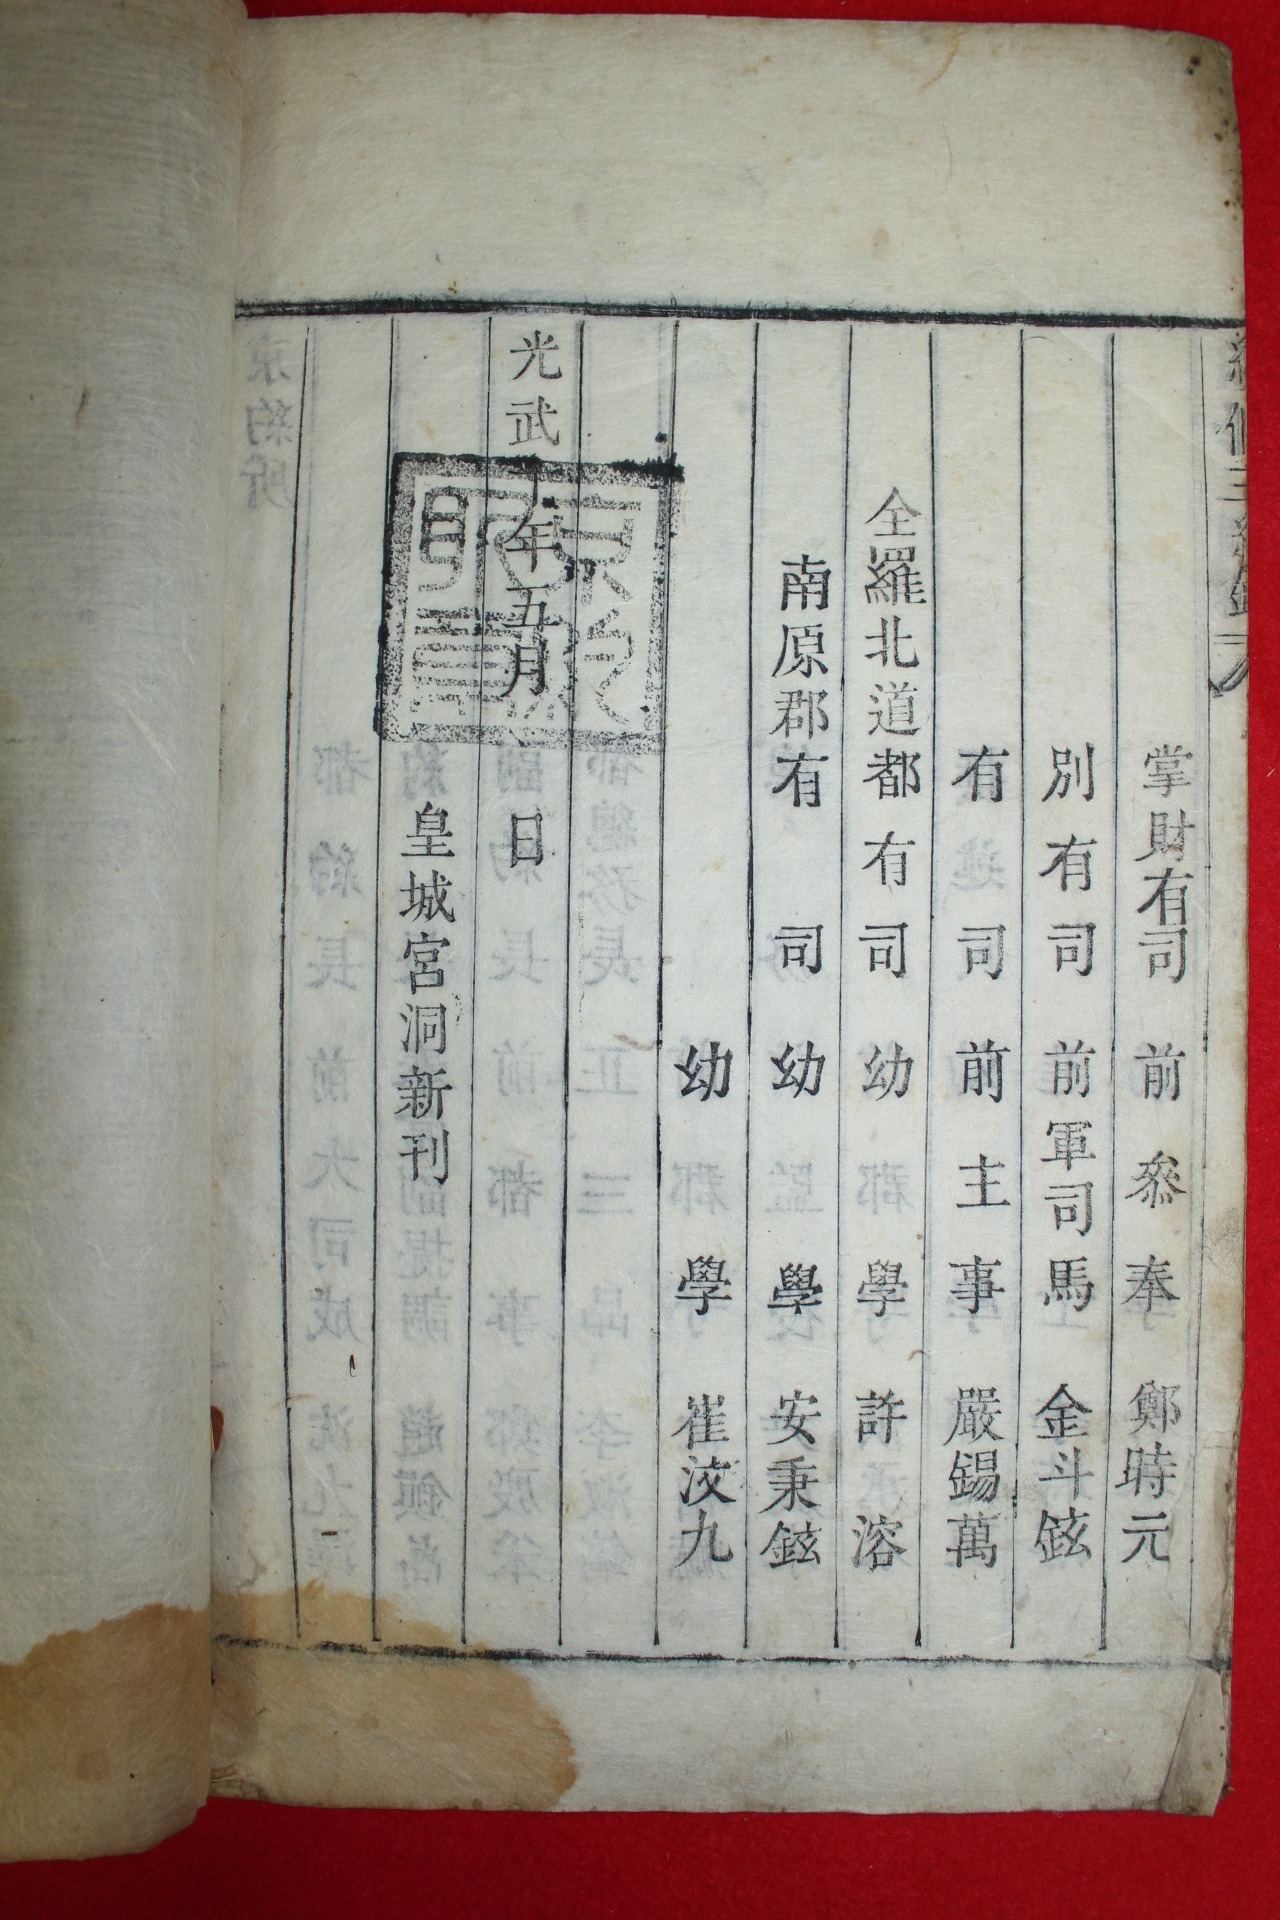 掌財有司 前參奉 鄭時元
別有司 前軍司馬 金斗鉉
有司 前主事 嚴錫萬
全羅北道都有司 幼學 許溶
南原郡有司 幼學 安秉鉉
幼學 崔洨九
光武 年五月 日
皇城宮洞新刊